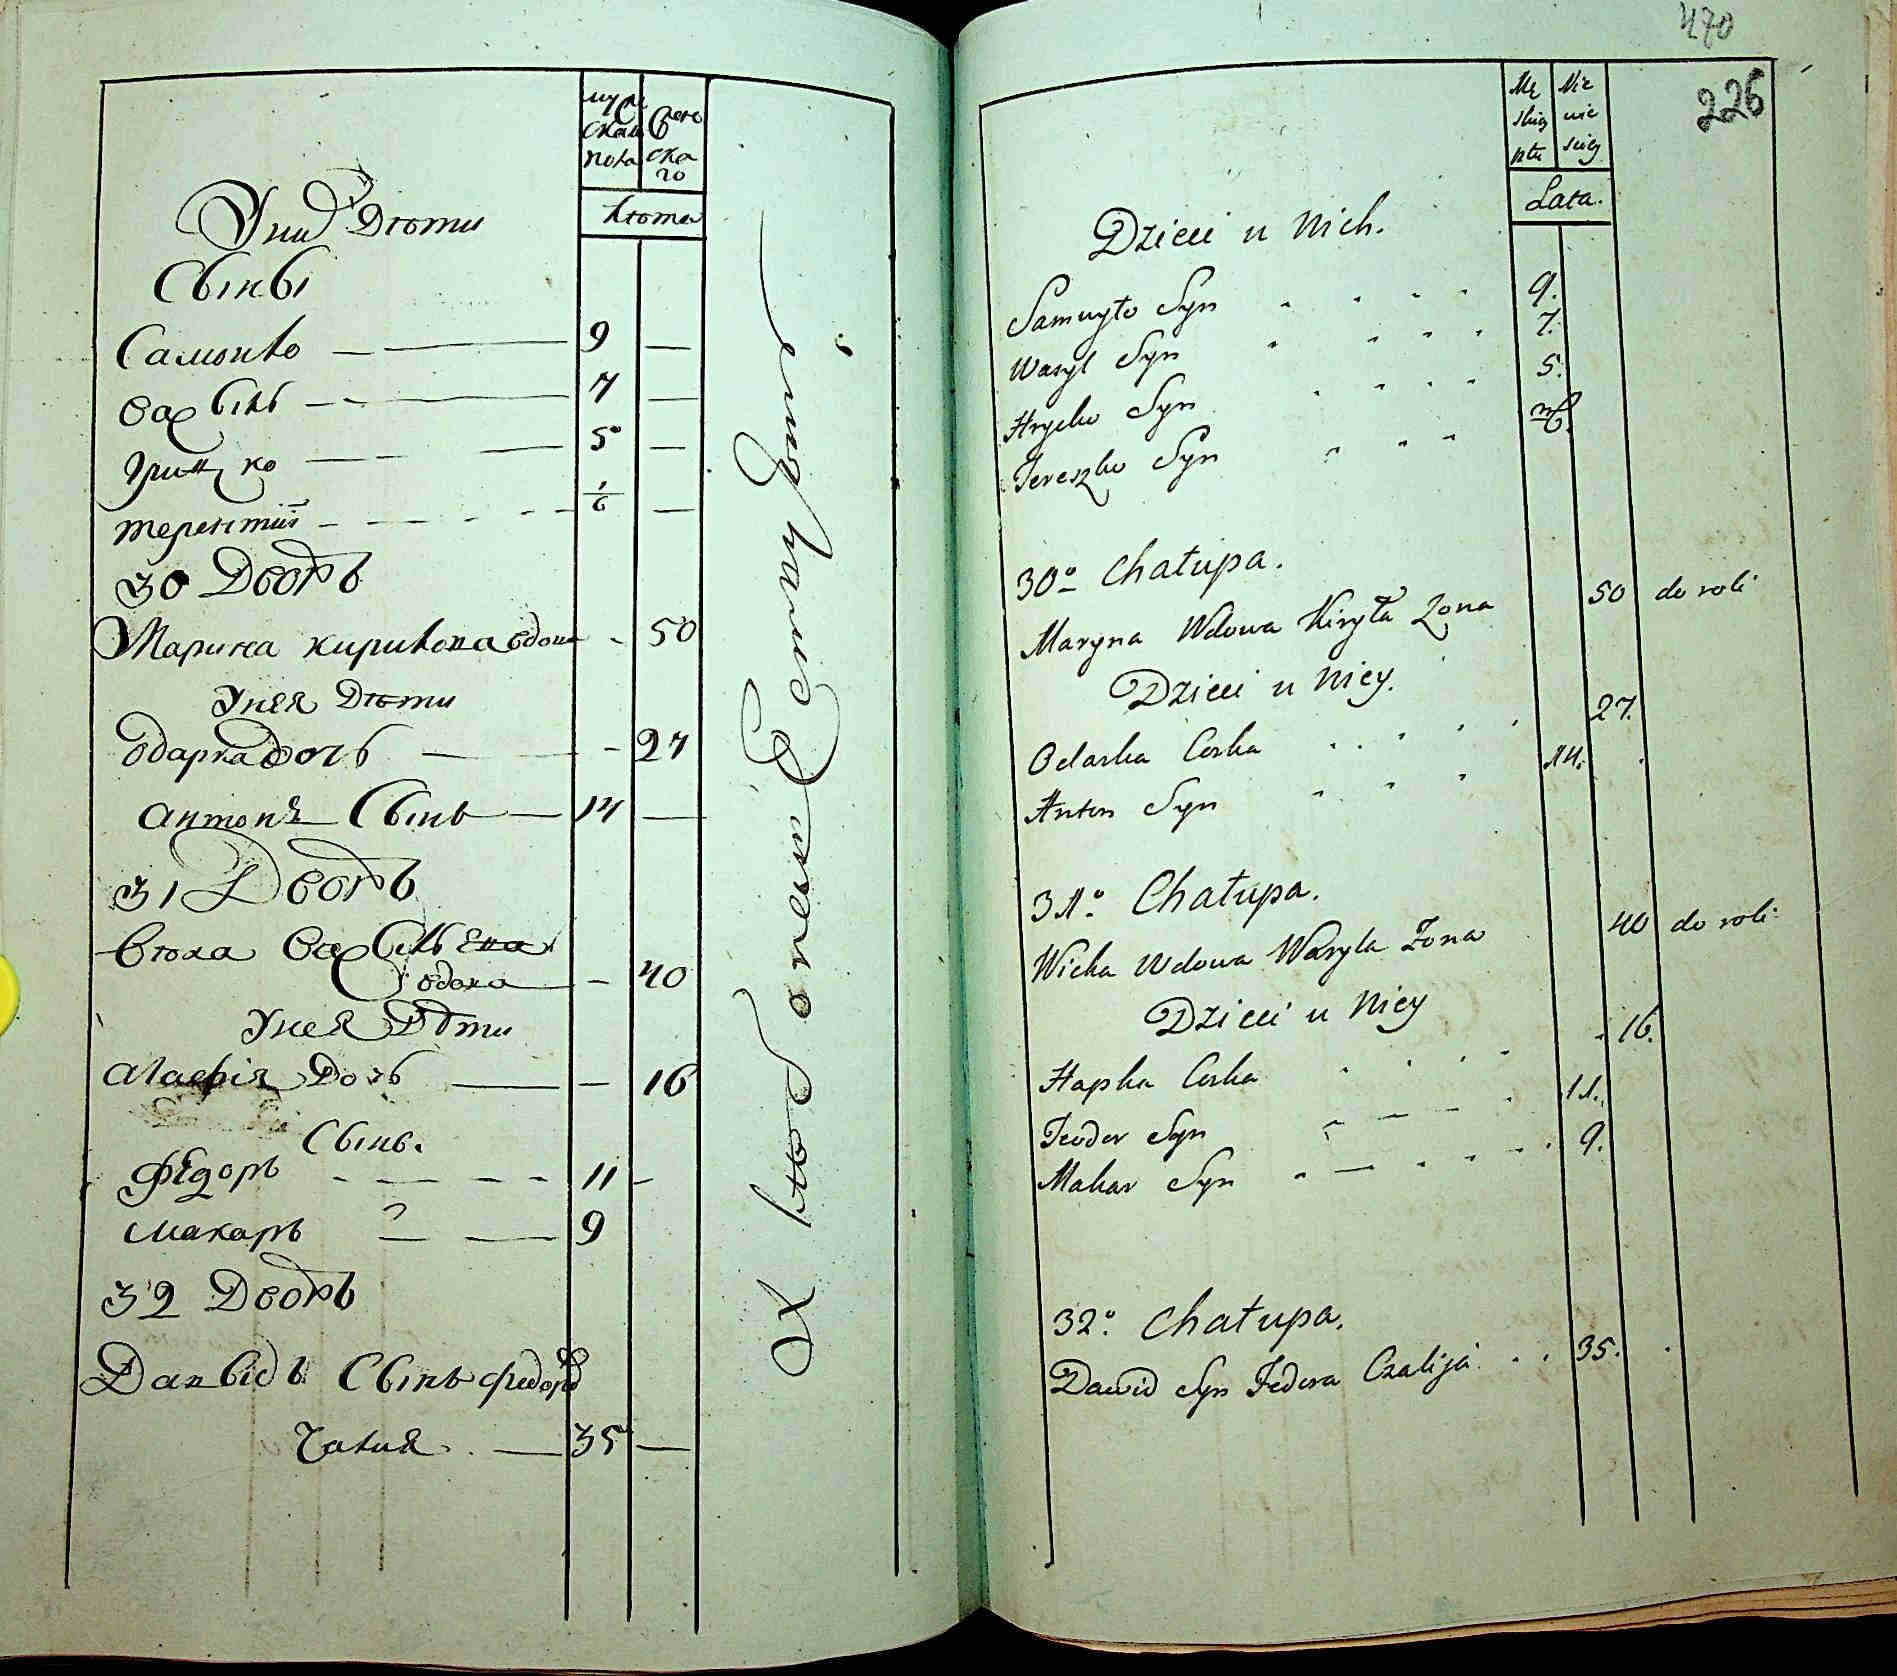 мужска пола
женска го
Лѣта
Унихъ Дѣти
Сыны
Самойло 9
Василь 7
Грицко 5
терентий 1/6
30 Дворъ
Марина кирилова вдова 50
Унея Дѣти
Одарка дочь 27
антонъ Сынъ 14
31 Дворъ
Васильева
вдова 40
Унея Дѣти
Агафія Дочь 16
Сынъ.
Фёдоръ 11
макаръ 9
32 Дворъ
Данвідъ Сынъ Федора
Чалия 35
470
226
Lata.
Dzieci u Nich.
Samuyło Syn 9.
Wasyl Syn 7.
Hrycko Syn 5.
Tereszko Syn
30º Chałupa.
Maryna Wdowa Kiryła Zona 50 do roli
Dzieci u Niey.
Odarka Corka 27.
Anton Syn 14.
31º Chałupa.
Wicka Wdowa Wasyla Zona 40 do roli
Dzieci u Niey
Hapka Corka 16.
Teodor Syn 11.
Makar Syn 9.
32º Chałupa.
Dawid Syn Fedora Czalija 35.